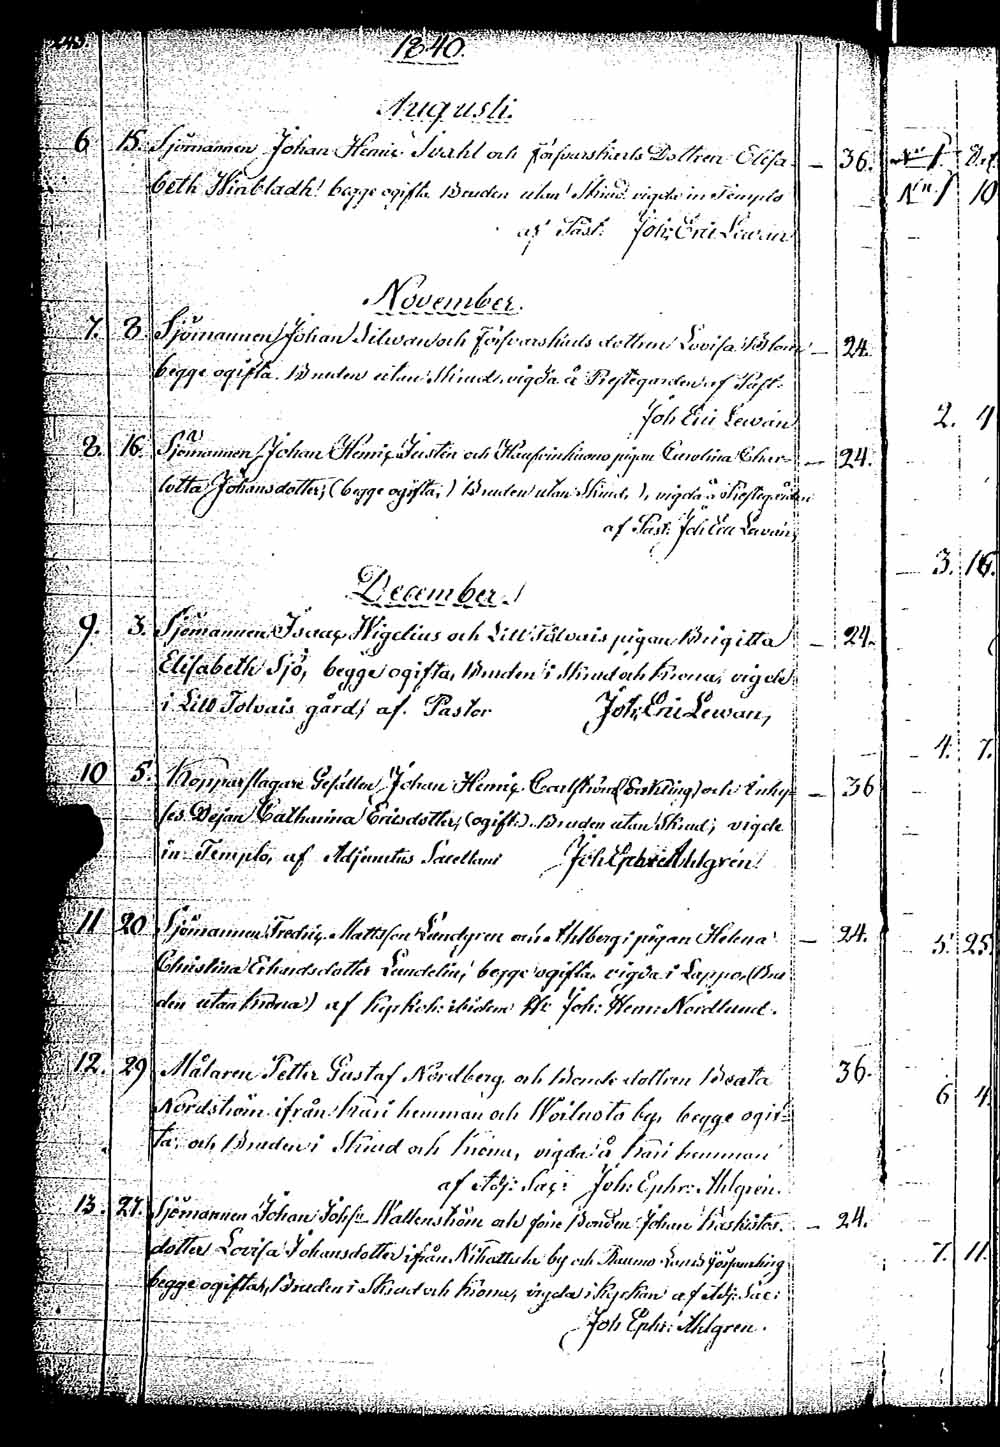 243.
1840.
Augusti.
6 15. Sjömannen Johan Henric Svahl och Försvarskarls Dottren Elisa- — 36.
beth Winbladh! begge ogifta. Bruden utan Skrud. vigde in Templo
af Past: Joh: Eric Lewan
November.
7. 8. Sjömannen Johan Silwan och Försvarskarls dottren Lovisa Blom — 24.
begge ogifta. Bruden utan Skrud. vigda å Prestegården af Past.
Joh Eric Lewan
8. 16. Sjömannen Johan Henric Justen och pigan Carolina Char- — 24.
lotta Johansdotter, (begge ogifta,) Bruden utan Skrud, vigda å Prestegården
af Past: Joh Eric Lewan,
December.
9. 3. Sjömannen Isaac Wigelius och Lill Tolvais pigan Brigitta — 24.
Elisabeth Sjö, begge ogifta, Bruden i Skrud och Krona, vigde
i Lill Tolvais gård, af Pastor Joh: Eric Lewan,
10 5. Kopparslagare Gesällen Johan Henric Carlström (Enkling) och Enky- — 36
Dejan Catharina Ericsdotter, (ogift.) Bruden utan Skrud, vigde
in Templo, af Adjunctus Sacellani Joh Ephr: Ahlgrén.
11 20 Sjömannen Fredric Mattsson Lundgren och Ahlbergs pigan Helena — 24.
Christina Erlandsdotter Lundelin, begge ogifta. vigda i Lappo, (Bru
den utan Krona) af Kyrkoh: ibidem Hr Joh: Henr: Nordlund.
12. 29 Målaren Petter Gustaf Nordberg och Bonde dottren Beata 36.
Nordström ifrån Kari hemman och Woiluoto by, begge ogif-
ta, och Bruden i Skrud och Krona, vigda å Kari hemman
af Adj: Sac: Joh: Ephr: Ahlgrén.
13. 27. Sjömannen Johan Johsn Wallenström och förre Bonden Johan — 24.
dotter Lovisa Johansdotter ifrån by och Raumo Lands församling
begge ogifta, Bruden i Skrud och Krona, vigda i Kyrkan af Adj: Sac:
Joh Ephr: Ahlgren.
N:o 1. 10
2. 4
3. 16.
4. 7.
5. 25.
6 4.
7. 11.